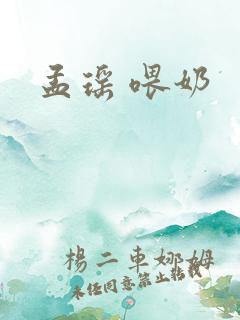 孟瑶喂奶
楊二車娜姆
未经同意禁止转载